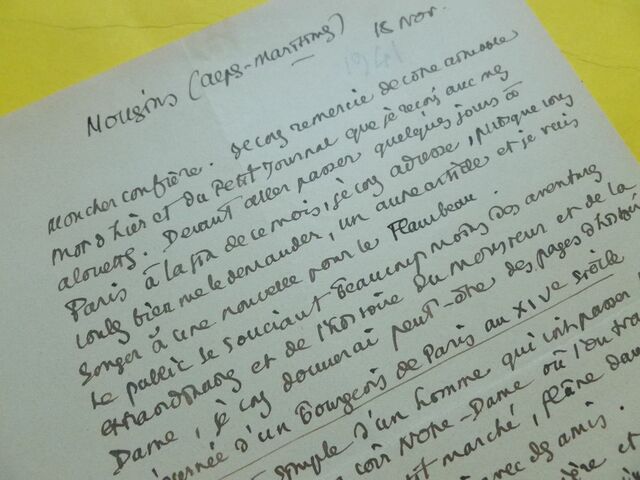 Mougins (Alpes-Maritimes) 18 Nov.
1941
Mon cher confrère. Je vous remercie de votre aimable
mot d'hier et du Petit Journal que je reçois avec mes
alouettes. Devant aller passer quelques jours à
Paris à la fin de ce mois, je vous adresse, puisque vous
voulez bien me le demander, un autre article et je vais
songer à une nouvelle pour le Flambeau.
Le public se souciant beaucoup moins des aventures
extraordinaires et de l'histoire du Monsieur et de la
Dame, je vous donnerai peut-être des pages d'histoire
journée d'un Bourgeois de Paris au XIVe siècle
simple d'un homme qui
voir Notre-Dame où l'on
marché, flâne dans
avec des amis.
et